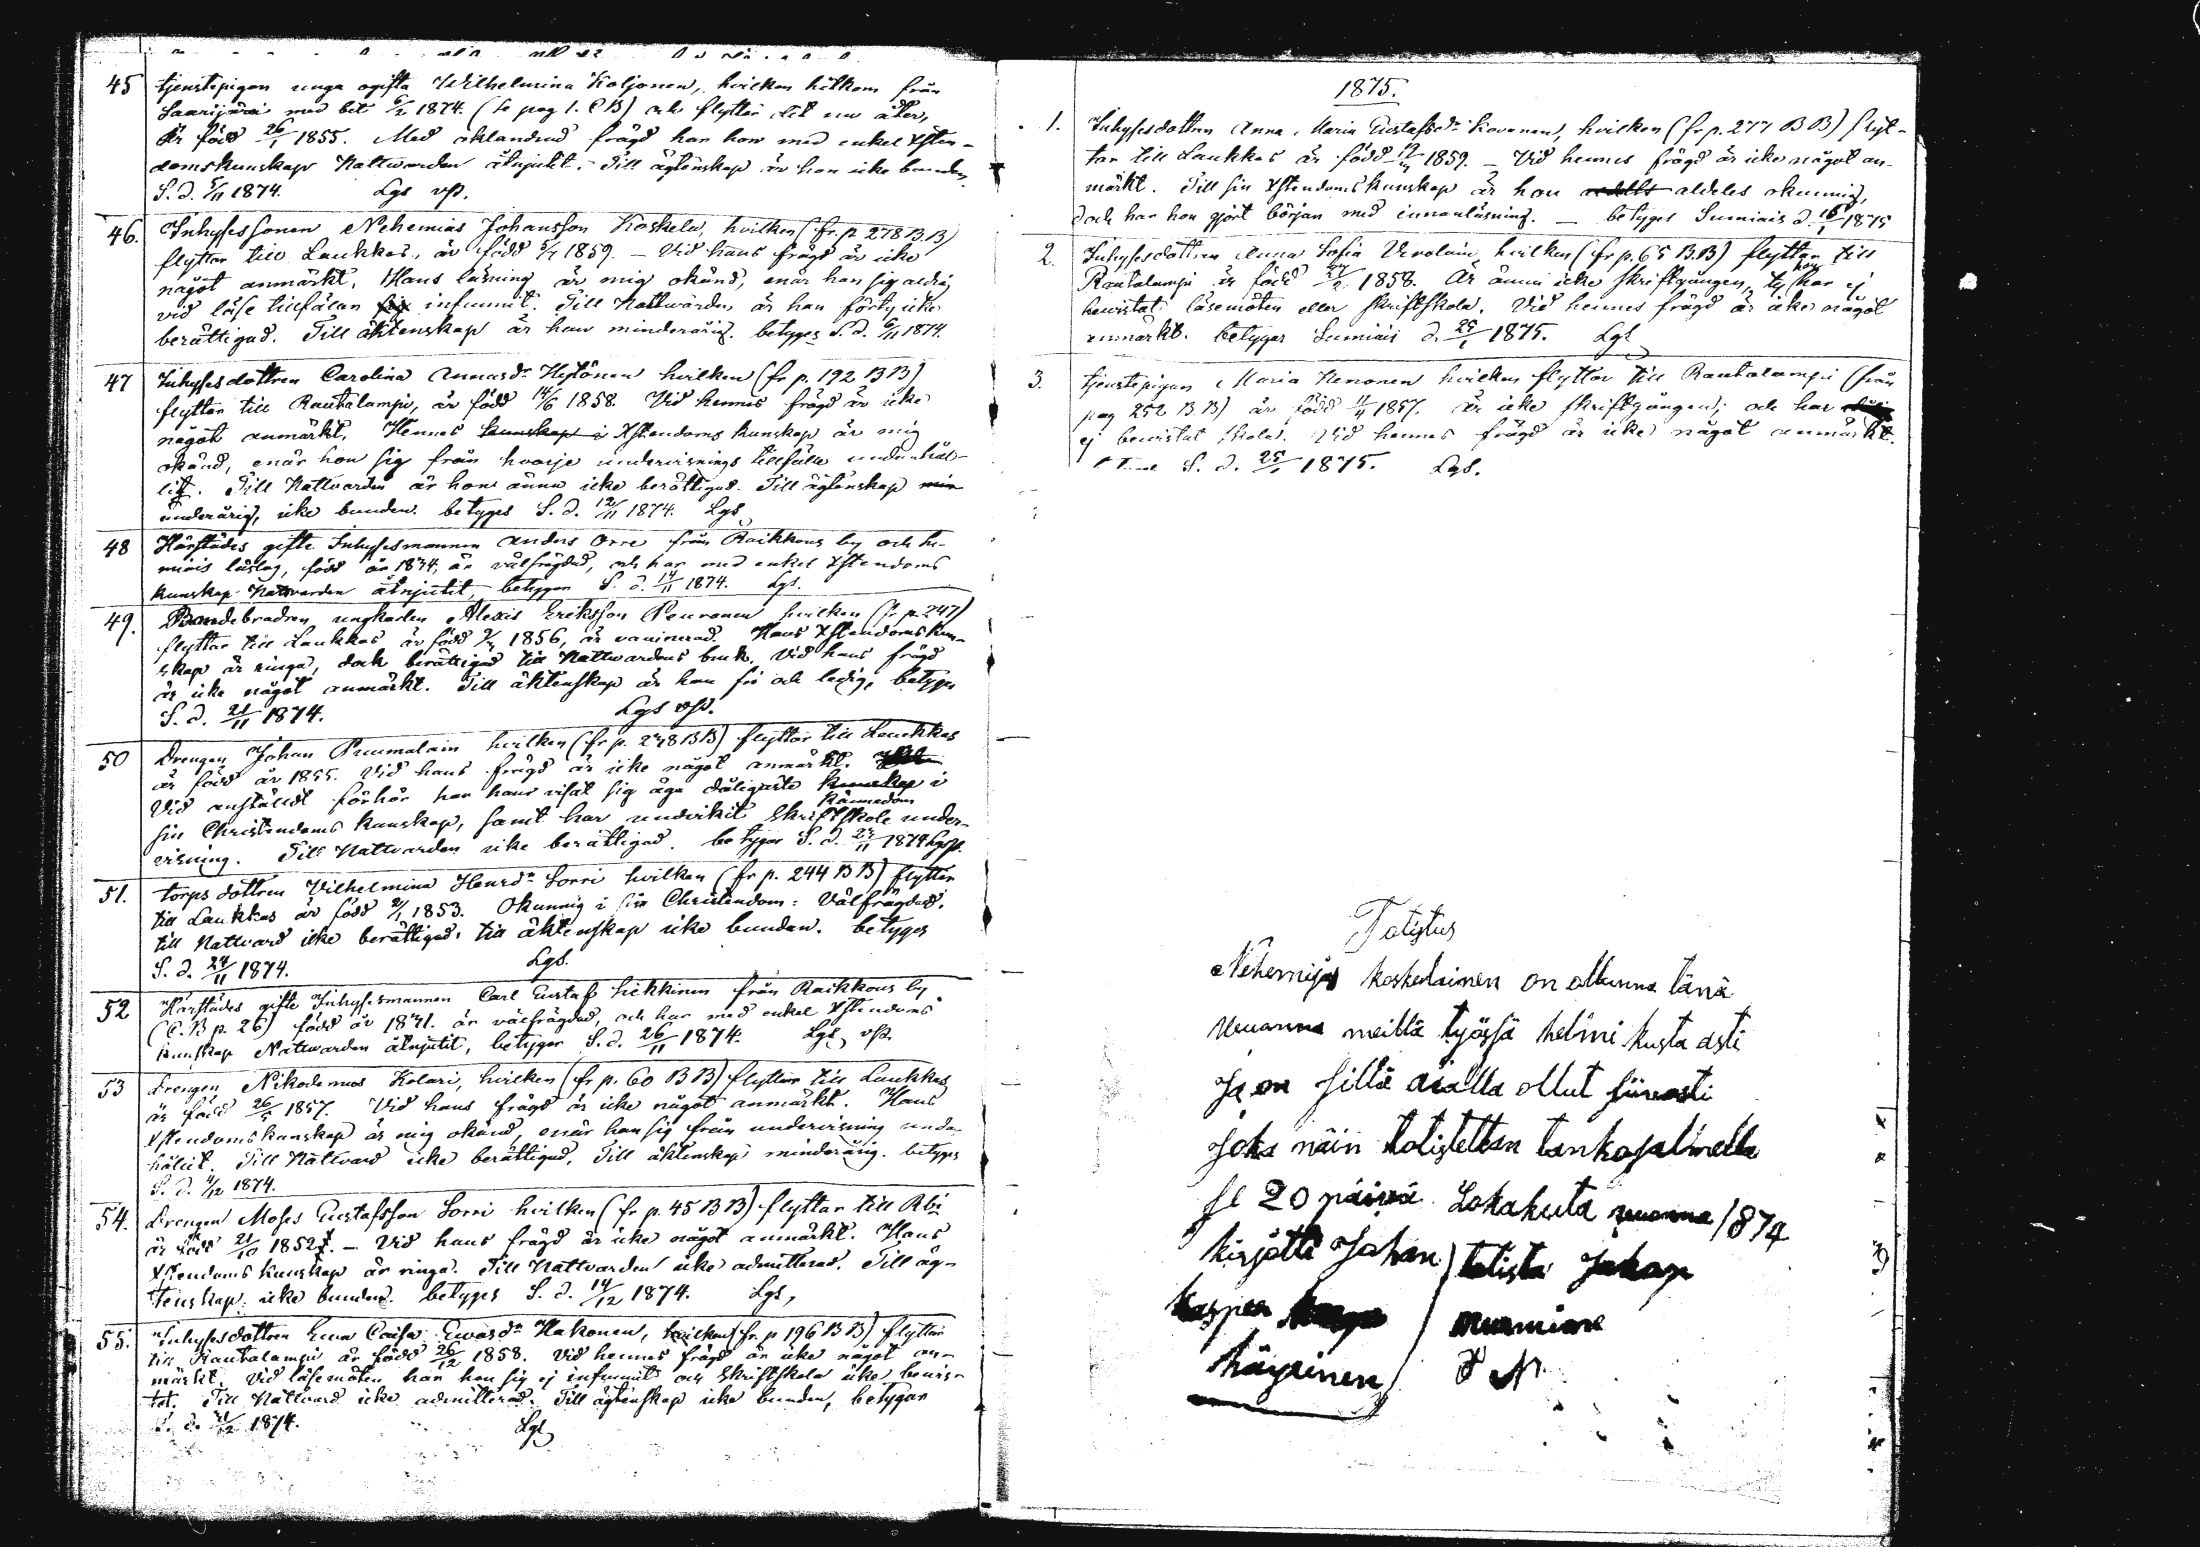 45 tjenstepigan unga ogifta Wilhelmina Koljonen, hvilken hitkom från
Saarijärvi med bet 6/2 1874. (se pag 1. C B) och flyttar dit nu åter,
Är född 26/1 1855. Med oklandrad frägd har hon med enkel Xsten-
domskunskap Nattwarden åtnjutit. Till ägtenskap är hon icke bunden,
S. d. 5/11 1874. Lgs vP.
46. Inhysessonen Nehemias Johansson Koskela, hvilken (fr. p. 278 B.B)
flyttar till Laukkas, är född 1859. — Vid hans frägd är icke
något anmärkt. Hans läsning är mig okänd, enär han sig aldrig
vid läse tillfälen infunnit. Till Nattwarden är han förty icke
berättigad. Till äktenskap är han minderårig. betyges S. d. 6/11 1874.
47 Inhysesdottren Carolina Annasdr Hytönen hvilken (fr p. 192 B B)
flyttar till Rautalampi, är född 14/6 1858. Vid hennes frägd är icke
något anmärkt. Hennes kunskap i Xstendoms kunskap är mig
okänd, enär hon sig från hvarje undervisnings tillfälle undanhål-
lit. Till Nattvarden är hon ännu icke berättigad. Till ägtenskap min
underårig, icke bunden. betyges S. d. 12/11 1874. Lgs
48 Härstädes gifte Inhysesmannen Anders Orre från Raikkaus by och Su-
miais läslag, född år 1834, är välfrägdad, och har med enkel Xstendoms
kunskap Nattvarden åtnjutit, betygar S. d. 14/11 1874. Lgs.
49. Bondebrodren ungkarlen Alexis Eriksson Peuronen hvilken (fr p. 247)
flyttar till Laukkas är född 1856, är vaccinerad. Hans Xstendoms kun-
skap är ringa, dock berättigad till Nattwardens bruk. Vid hans frägd
är icke något anmärkt. Till äktenskap är han fri och ledig, betyges
S. d. 21/11 1874. Lgs vP.
50 Drengen Johan Puumalain hvilken (fr p. 278 B B) flyttar till Laukkas
är född år 1855. Vid hans frägd är icke något anmärkt.
Vid anstäldt förhör har han visat sig äga dåligaste kunskap i
kännedom
sin Christendoms kunskap, samt har undvikit Skriftskole under-
visning. Till Nattvarden icke berättigad. betygar S. d. 1874
51. torpsdottren Vilhelmina Henrdr Sorri hvilken (fr p. 244 B B) flyttar
till Laukkas är född 2/1 1853. Okunnig i sin Christendom: Välfrägdad.
till Nattvard icke berättigad, till äktenskap icke bunden. betyges
S. d. 24/11 1874. Lgs.
52 Härstädes gifte Inhysesmannen Carl Gustaf Liekkinen från Raikkaus by
(C. B p. 26) född år 1841. är välfrägdad, och har med enkel Xstendoms
kunskap Nattwarden åtnjutit, betygar S. d. 26/11 1874. Lgs, vP.
53 Drengen Nikodemus Kolari, hvilken (fr p. 60 B B) flyttar till Laukkas,
är född 26/5 1857. Vid hans frägd är icke något anmärkt. Hans
Xstendomskunskap är mig okänd, enär han sig från undervisning unda-
hållit. Till Nattvard icke berättigad. Till äktenskap minderårig. betyges
S. d. 4/12 1874.
54. Drengen Moses Gustafsson Sorri hvilken (fr p. 45 B B) flyttar till Abi
är född 21/10 1852. — Vid hans frägd är icke något anmärkt. Hans
Xstendoms kunskap är ringa. Till Nattvarden icke admitterad. Till äg-
tenskap icke bunden. betyges S. d. 14/12 1874. Lgs,
55. Inhysesdottren Ewa Caisa Ewasdr Hakonen, hvilken (fr. p 196 B B) flyttar
till Rautalampi är född 26/12 1858. Vid hennes frägd är icke något an-
märkt. Vid läsemöten har hon sig ej infunnit och skriftskola icke bevis-
tat. Till Nattvard icke admitterad. Till ägtenskap icke bunden, betygar
S. d. 21/12 1874. Lgs
1875.
1. Inhysesdottren Anna Maria Gustafsdr Kovanen, hvilken (fr p. 277 B B) flyt-
tar till Laukkas är född 1859. — Vid hennes frägd är icke något an-
märkt. Till sin Xstendomskunskap är hon aldeles okunnig,
dock har hon gjort början med innanläsning. — betyges Sumiais d. 1875
2. Inhysesdottren Anna Sofia Urvolain, hvilken (fr p. 65 B.B) flyttar till
Rautalampi är född 1858. Är ännu icke skriftgången, ty hon har ej
bevistat läsemöten eller skriftskola. Vid hennes frägd är icke något
anmärkt. betyger Sumiais d. 25/1 1875. Lgs
3. tjenstepigan Maria Nenonen hvilken flyttar till Rautalampi (från
pag 252 B B) är född 1857. är icke skriftgången; och har
ej bevistat skola. Vid hennes frägd är icke något anmärkt.
S. d. 25/1 1875. Lgs.
Totistus
Nehemijas koskelainen on ollunna tänä
vuonna meillä työssä helmi kusta asti
Ja on sillä aialla ollut siivosti
Joka näin totistettan tankosalmella
se 20 päivä Lokakuta vuonna 1874
kirjotti Johan totista Jakop
kasper muminne
häyrinen J N